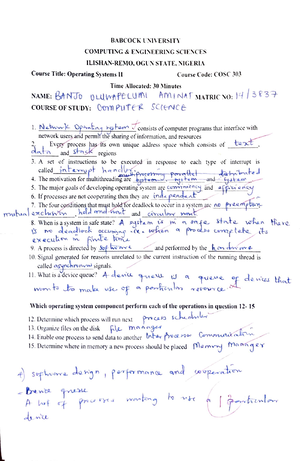 BABCOCK UNIVERSITY
COMPUTING & ENGINEERING SCIENCES
ILISHAN-REMO, OGUN STATE, NIGERIA
Course Title: Operating Systems II Course Code: COSC 303
Time Allocated: 30 Minutes
NAME: BANJO OLUWAPELUMI AMINAT MATRIC NO: 14/3837
COURSE OF STUDY: COMPUTER SCIENCE
1. Network Operating system consists of computer programs that interface with
network users and permit the sharing of information, and resources
2. Every process has its own unique address space which consists of text
data and stack regions
3. A set of instructions to be executed in response to each type of interrupt is
called interrupt handler
4. The motivation for multithreading are
5. The major goals of developing operating system are and efficiency
6. If processes are not cooperating then they are independent
7. The four condition that must hold for deadlock to occur in a system are no preemption
mutual exclusion hold and wait and circular wait
8. When is a system in safe state? A system is in a safe state when there
is no deadlock occurring i.e. when a process complete its
execution in finite time
9. A process is detected by software and performed by the hardware
10. Signal generated for reasons unrelated to the current instruction of the running thread is
called asynchronous signals.
11. What is a device queue? A device queue is a queue of devices that
wants to make use of a particular resource
Which operating system component perform each of the operations in question 12- 15
12. Determine which process will run next process scheduler
13. Organize files on the disk file manager
14. Enable one process to send data to another Interprocess Communication
15. Determine where in memory a new process should be placed Memory Manager
4) software design, performance and cooperation
Device queue
A list of process waiting to use a particular
device